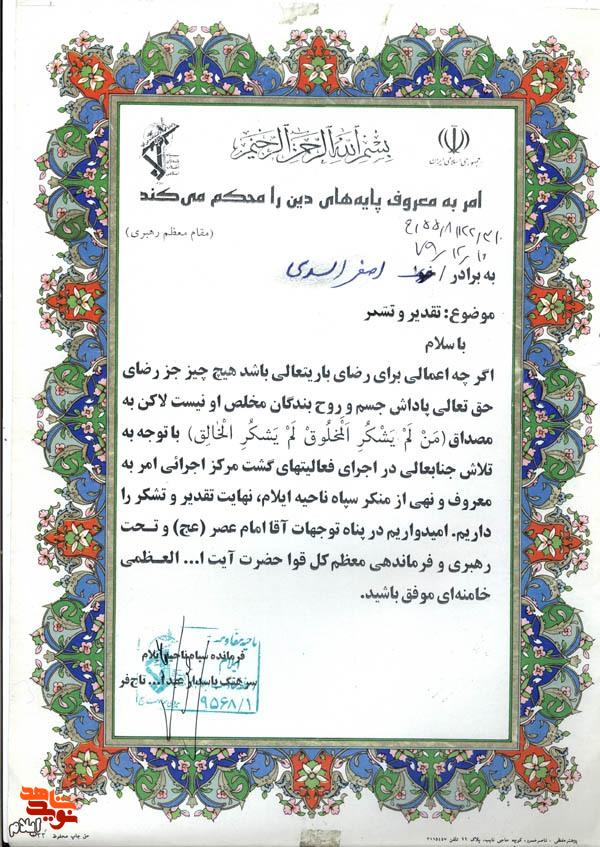 بسم الله الرحمن الرحیم
جمهوری اسلامی ایران
امر به معروف پایه‌های دین را محکم می‌کند
(مقام معظم رهبری)
۷۹/۱۲/۱۰
به برادر / اصغر اسدی
موضوع: تقدیر و تشکر
با سلام
اگر چه اعمالی برای رضای باریتعالی باشد هیچ چیز جز رضای
حق تعالی پاداش جسم و روح بندگان مخلص او نیست لاکن به
مصداق (مَنْ لَمْ یَشْکُرِ الْمَخلُوقْ لَمْ یَشکُرِ الْخالِق) با توجه به
تلاش جنابعالی در اجرای فعالیتهای گشت مرکز اجرائی امر به
معروف و نهی از منکر سپاه ناحیه ایلام، نهایت تقدیر و تشکر را
داریم. امیدواریم در پناه توجهات آقا امام عصر (عج) و تحت
رهبری و فرماندهی معظم کل قوا حضرت آیت ا... العظمی
خامنه‌ای موفق باشید.
فرمانده سپاه ناحیه ایلام
سرهنگ پاسدار عبدا... تاج‌فر
۹۵۶۸/۱
نوید شاهد
ایلام
حق چاپ محفوظ